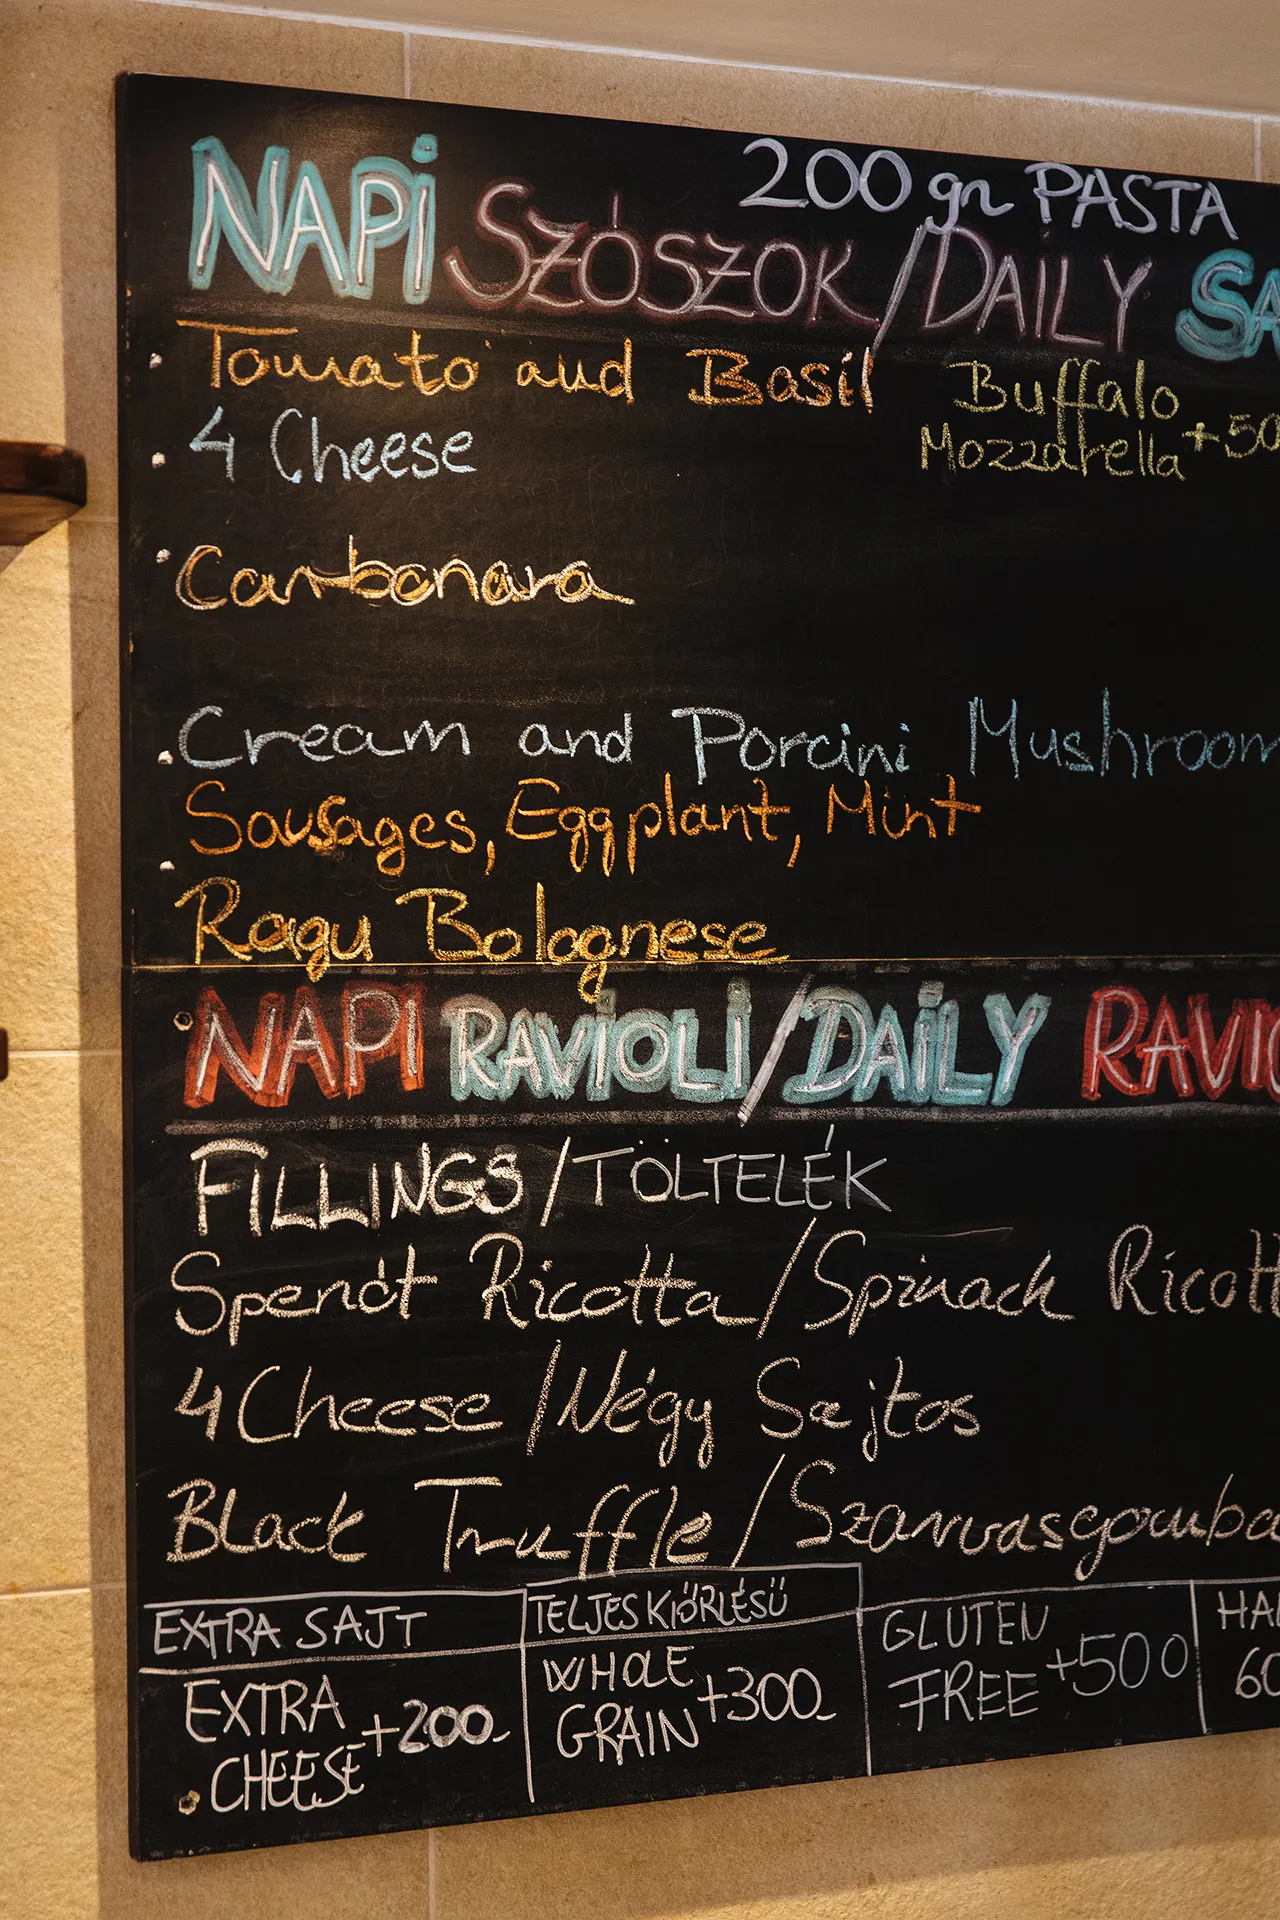 200 gr PASTA
NAPI SZÓSZOK/DAILY SA
Tomato and Basil
Buffalo
Mozzarella +50
4 Cheese
Carbonara
Cream and Porcini Mushroom
Sausages, Eggplant, Mint
Ragu Bolognese
NAPI RAVIOLI/DAILY RAVIO
FILLINGS/TÖLTELÉK
Spenót Ricotta/Spinach Ricott
4 Cheese/Négy Sajtos
Black Truffle/Szarvasgomba
EXTRA SAJT
EXTRA
CHEESE +200-
TELJES KIŐRLÉSŰ
WHOLE
GRAIN +300-
GLUTEN
FREE +500
HA
60